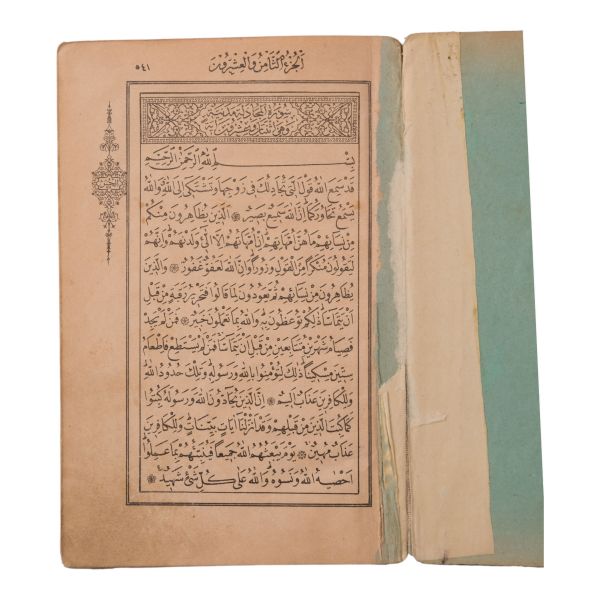 الجزء الثامن والعشرون
٥٤١
سورة المجادلة مدنية
وهي اثنتان وعشرون آية
بسم الله الرحمن الرحيم
قَدْ سَمِعَ اللهُ قَوْلَ الَّتِي تُجَادِلُكَ فِي زَوْجِهَا وَتَشْتَكِي إِلَى اللهِ وَاللهُ
يَسْمَعُ تَحَاوُرَكُمَا إِنَّ اللهَ سَمِيعٌ بَصِيرٌ ۞ الَّذِينَ يُظَاهِرُونَ مِنْكُمْ
مِنْ نِسَائِهِمْ مَا هُنَّ أُمَّهَاتِهِمْ إِنْ أُمَّهَاتُهُمْ إِلَّا الّٰئِ وَلَدْنَهُمْ وَإِنَّهُمْ
لَيَقُولُونَ مُنْكَرًا مِنَ الْقَوْلِ وَزُورًا وَإِنَّ اللهَ لَعَفُوٌّ غَفُورٌ ۞ وَالَّذِينَ
يُظَاهِرُونَ مِنْ نِسَائِهِمْ ثُمَّ يَعُودُونَ لِمَا قَالُوا فَتَحْرِيرُ رَقَبَةٍ مِنْ قَبْلِ
أَنْ يَتَمَاسَّا ذٰلِكُمْ تُوعَظُونَ بِهِ وَاللهُ بِمَا تَعْمَلُونَ خَبِيرٌ ۞ فَمَنْ لَمْ يَجِدْ
فَصِيَامُ شَهْرَيْنِ مُتَتَابِعَيْنِ مِنْ قَبْلِ أَنْ يَتَمَاسَّا فَمَنْ لَمْ يَسْتَطِعْ فَإِطْعَامُ
سِتِّينَ مِسْكِينًا ذٰلِكَ لِتُؤْمِنُوا بِاللهِ وَرَسُولِهِ وَتِلْكَ حُدُودُ اللهِ
وَلِلْكَافِرِينَ عَذَابٌ أَلِيمٌ ۞ إِنَّ الَّذِينَ يُحَادُّونَ اللهَ وَرَسُولَهُ كُبِتُوا
كَمَا كُبِتَ الَّذِينَ مِنْ قَبْلِهِمْ وَقَدْ أَنْزَلْنَا آيَاتٍ بَيِّنَاتٍ وَلِلْكَافِرِينَ
عَذَابٌ مُهِينٌ ۞ يَوْمَ يَبْعَثُهُمُ اللهُ جَمِيعًا فَيُنَبِّئُهُمْ بِمَا عَمِلُوا
أَحْصٰيهُ اللهُ وَنَسُوهُ وَاللهُ عَلٰى كُلِّ شَيْءٍ شَهِيدٌ ۞